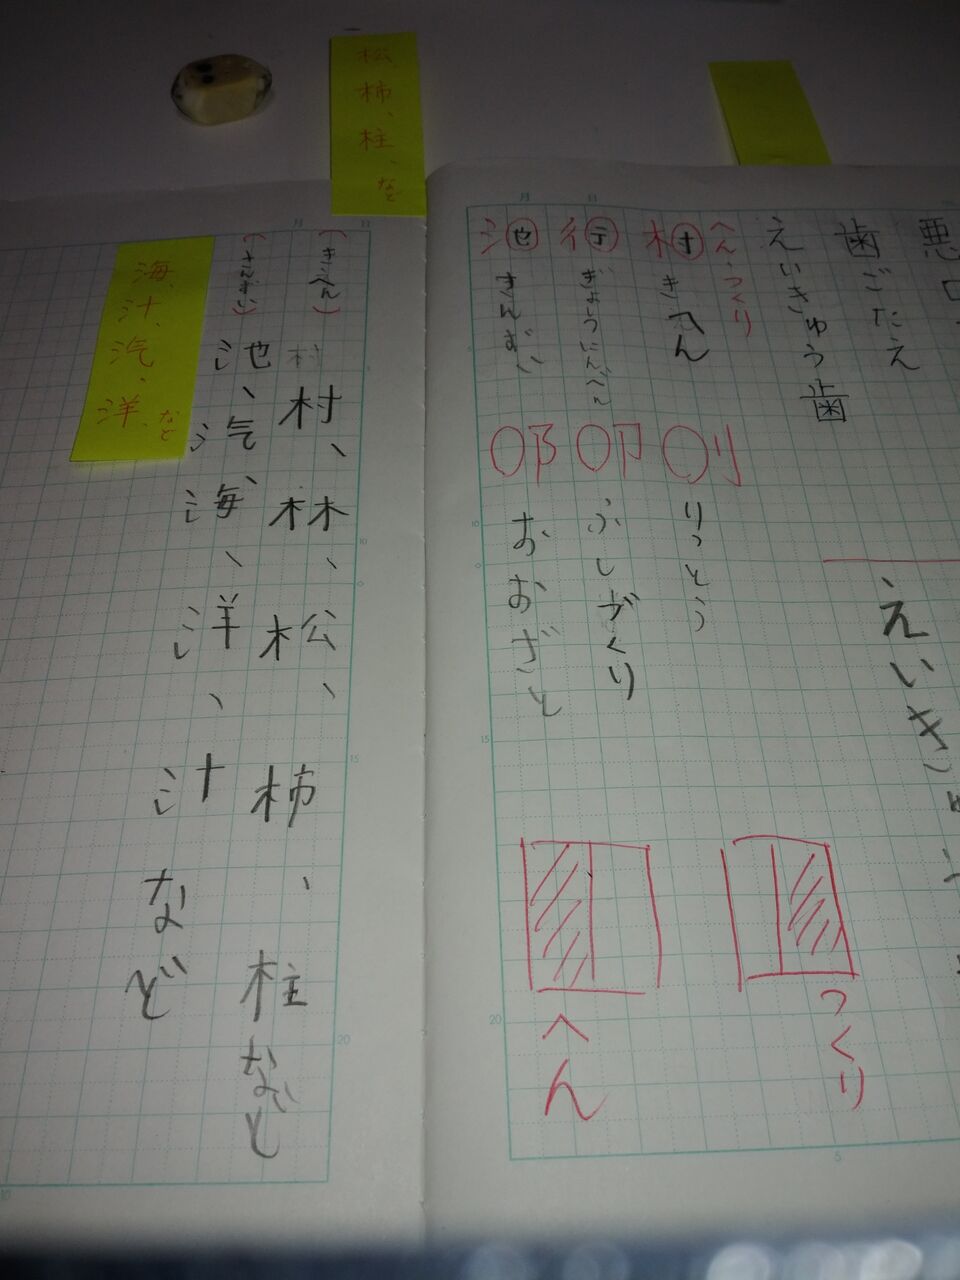 歯ごたえ
えいきゅう歯
へん、つくり
村 きへん
行 ぎょうにんべん
池 さんずい
りっとう
ふしづくり
おおざと
つくり
へん
松、柿、柱、など
(きへん)
村
村、林、松、柿、柱など
(さんずい)
池、汽、海、洋、汁など
海、汁、汽、洋、など